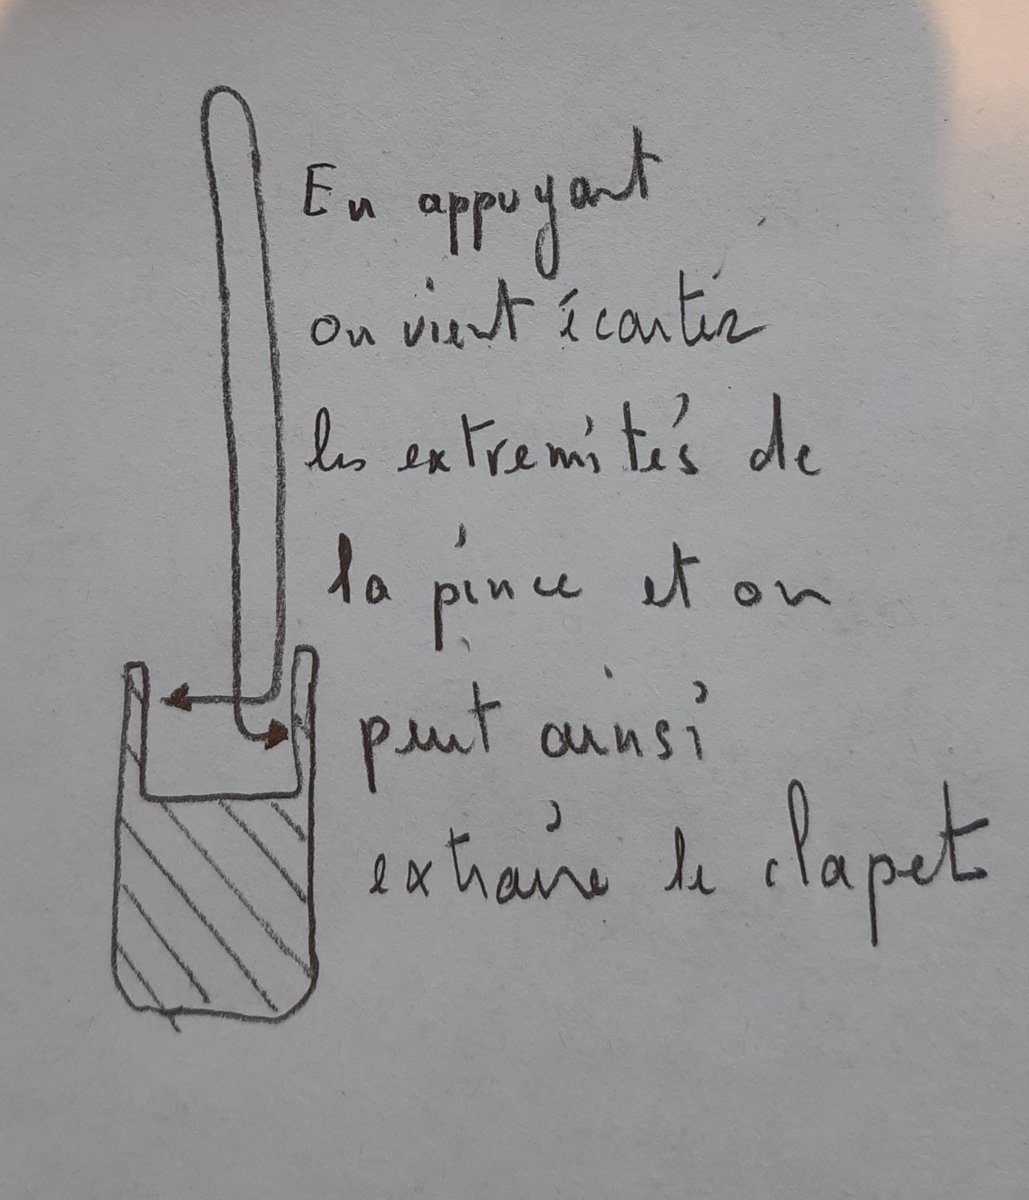 En appuyant
on vient écarter
les extremités de
la pince et on
peut ainsi
extraire le clapet